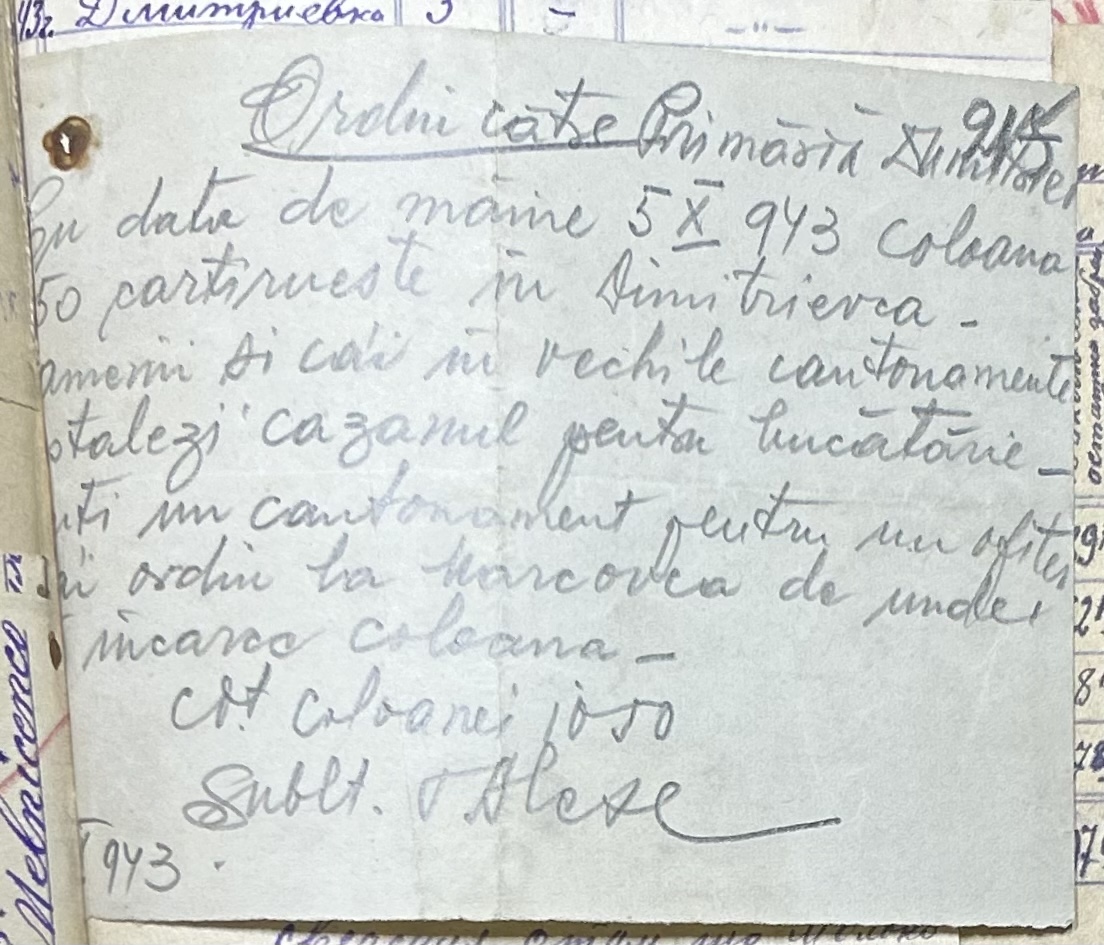 43г. Дмитриевка 3 – –"–
Ordin către Primăria Dimitrie
Cu data de mâine 5 X 943 coloana
50 cartirueste în Dimitrievca -
amenii si caii în vechile cantonamente
stalezi cazanul pentru bucătărie -
un cantonament pentru un ofiter
ordin la Marcovca de unde
încarc coloana -
Cdt. coloanei 1050
Sublt. T. Alexe
943.
Melnicenco
остатка